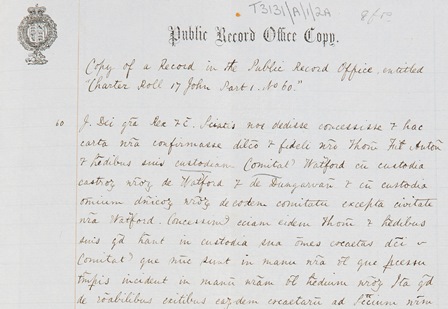 T3131/A/1/2A
Public Record Office Copy.
Copy of a Record in the Public Record Office, entitled
"Charter Roll 17 John Part 1. No 60."
60. J. Dei gra Rex &c. Sciatis nos dedisse concessisse & hac
carta nra confirmasse dilco & fideli nro Thom Fit Anton
& hedibus suis custodiam Comitat Watford cu custodia
castroz nroz de Watford & de Dungarvan & cu custodia
omium dnicoz nroz de eodem comitatu excepta civitate
nra Watford. Concessim eciam eidem Thom & hedibus
suis qd hant in custodia sua omes escaetas dci
Comitat que nuc sunt in manu nra vl que
incident in manu nram vl hedium nroz Ita qd
de escaetaru ad nrm